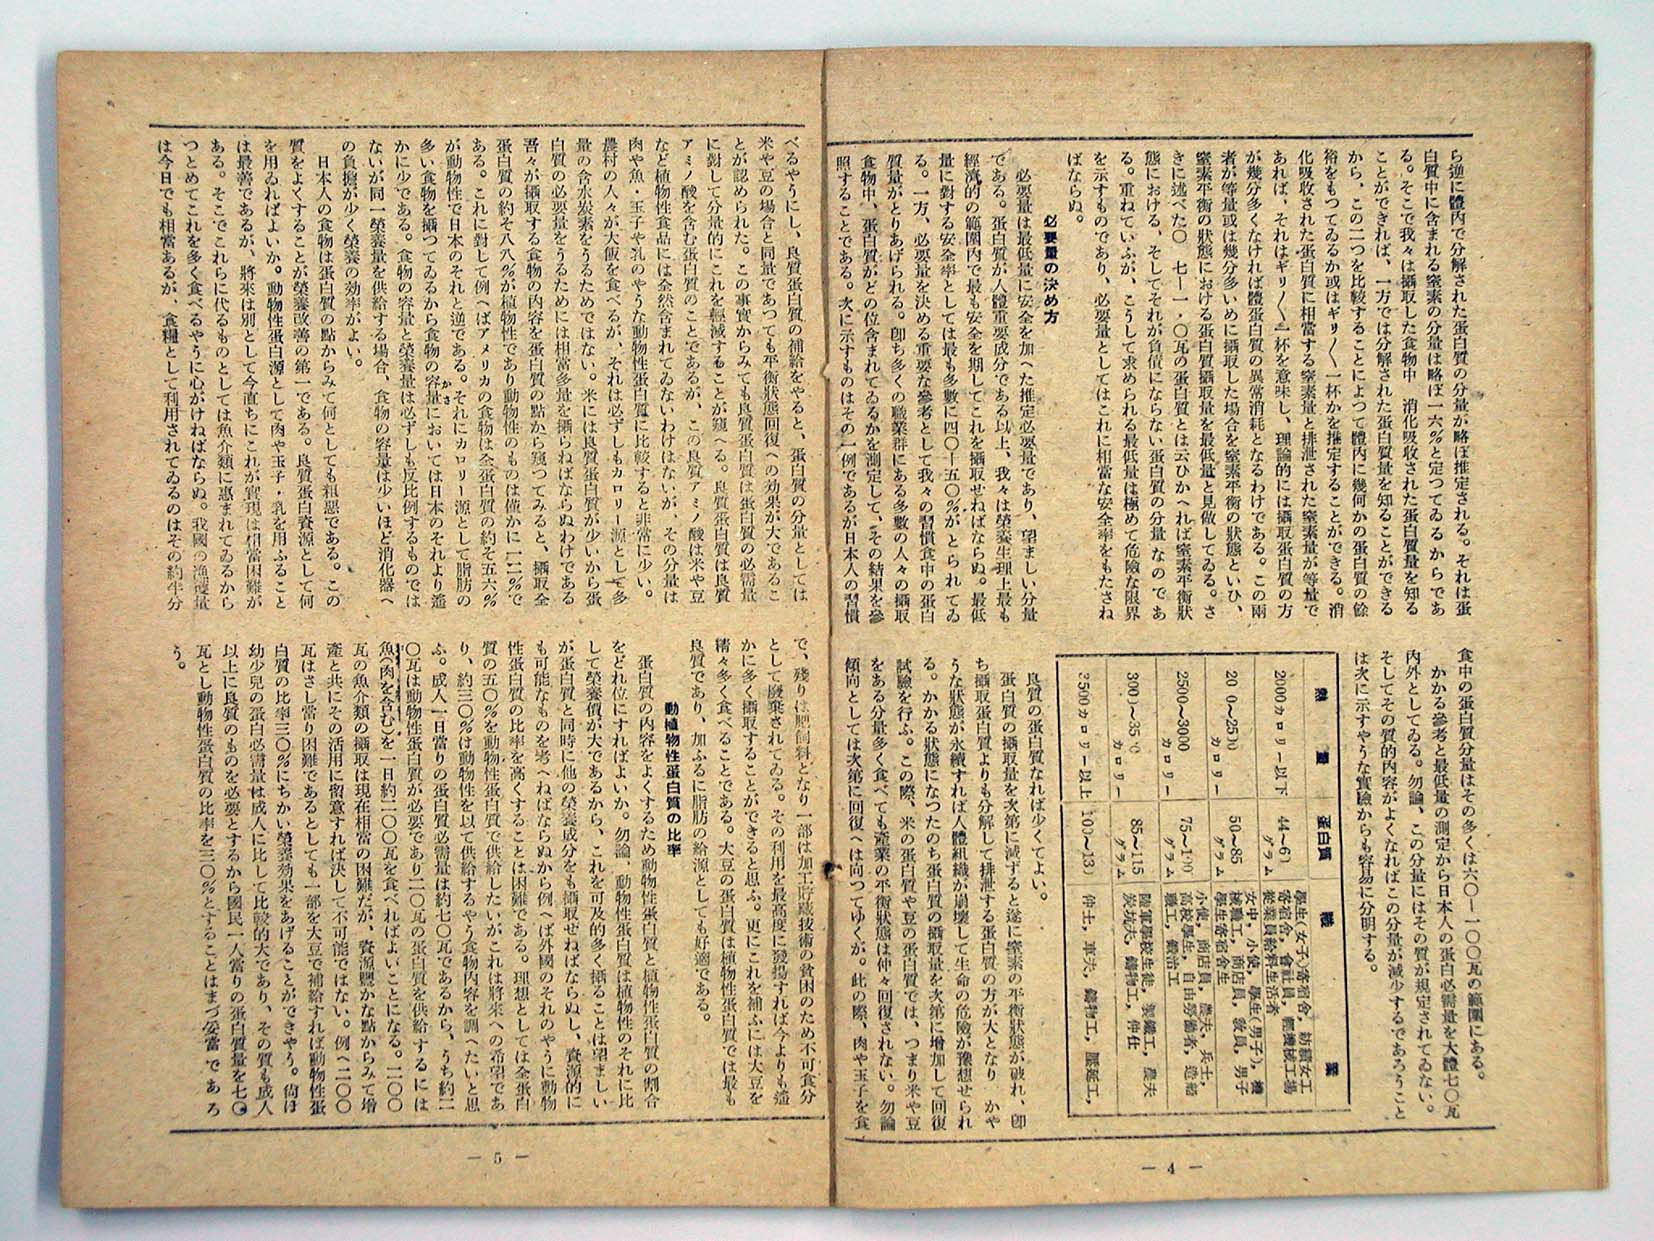 ら逆に體內で分解された蛋白質の分量が略ぼ推定される。それは蛋
白質中に含まれる窒素の分量は略ぼ一六％と定つてゐるからであ
る。そこで我々は攝取した食物中　消化吸收された蛋白質量を知る
ことができれば、一方では分解された蛋白質量を知ることができる
から、この二つを比較することによつて體內に幾何かの蛋白質の餘
裕をもつてゐるか或はギリ〳〵一杯かを推定することができる。消
化吸收された蛋白質に相當する窒素量と排泄された窒素量が等量で
あれば、それはギリ〳〵一杯を意味し、理論的には攝取蛋白質の方
が幾分多くなければ體蛋白質の異常消耗となるわけである。この兩
者が等量或は幾分多いめに攝取した場合を窒素平衡の狀態といひ、
窒素平衡の狀態における蛋白質攝取量を最低量と見做してゐる。さ
きに述べた〇　七－一・〇瓦の蛋白質とは云ひかへれば窒素平衡狀
態における、そしてそれが負債にならない蛋白質の分量なのであ
る。重ねていふが、こうして求められる最低量は極めて危險な限界
を示すものであり、必要量としてはこれに相當な安全率をもたさね
ばならぬ。
必要量の決め方
必要量は最低量に安全を加へた推定必要量であり、望ましい分量
である。蛋白質が人體重要成分である以上、我々は榮養生理上最も
經濟的の範圍內で最も安全を期してこれを攝取せねばならぬ。最低
量に對する安全率としては最も多數に四〇－五〇％がとられてゐ
る。一方、必要量を決める重要な參考として我々の習慣食中の蛋白
質量がとりあげられる。卽ち多くの職業群にある多數の人々の攝取
食物中、蛋白質がどの位含まれてゐるかを測定して、その結果を參
照することである。次に示すものはその一例であるが日本人の習慣
食中の蛋白質分量はその多くは六〇－一〇〇瓦の範圍にある。
かかる參考と最低量の測定から日本人の蛋白必需量を大體七〇瓦
內外としてゐる。勿論、この分量にはその質が規定されてゐない。
そしてその質的內容がよくなればこの分量が減少するであろうこと
は次に示すやうな實驗からも容易に分明する。
熱量　蛋白質　職業
2000カロリー以下　44～61グラム　學生(女子)寄宿舍，紡績女工
寄宿舍，會社員，輕機械工場
從業員給料生活者
20 0～2500カロリー　50～85グラム　女中，小使，學生(男子)，機
械職工，商店員，敎員，男子
學生寄宿舍生
2500～3000カロリー　75～100グラム　小使，商店員，農夫，兵士，
高校學生，自由勞働者，造船
職工，鍛冶工
3000～3500カロリー　85～115グラム　陸軍學校生徒，製鐵工，農夫
炭坑夫，鑄物工，仲仕
3500カロリー以上　100～130　仲士，車夫，鑄物工，壓延工，
良質の蛋白質なれば少くてよい。
蛋白質の攝取量を次第に減ずると遂に窒素の平衡狀態が破れ、卽
ち攝取蛋白質よりも分解して排泄する蛋白質の方が大となり　かや
うな狀態が永續すれば人體組織が崩壞して生命の危險が豫想せられ
る。かかる狀態になつたのち蛋白質の攝取量を次第に增加して回復
試驗を行ふ。この際、米の蛋白質や豆の蛋白質では、つまり米や豆
をある分量多く食べても窒素の平衡狀態は仲々回復されない。勿論
傾向としては次第に回復へは向つてゆくが。此の際、肉や玉子を食
— 4 —
べるやうにし、良質蛋白質の補給をやると、蛋白質の分量としては
米や豆の場合と同量であつても平衡狀態回復への効果が大であるこ
とが認められた。この事實からみても良質蛋白質は蛋白質の必需量
に對して分量的にこれを輕減することが窺へる。良質蛋白質は良質
アミノ酸を含む蛋白質のことであるが、この良質アミノ酸は米や豆
など植物性食品には全然含まれてゐないわけはないが、その分量は
肉や魚・玉子や乳のやうな動物性蛋白質に比較すると非常に少い。
農村の人々が大飯を食べるが、それは必ずしもカロリー源として多
量の含水炭素をうるためではない。米には良質蛋白質が少いから蛋
白質の必要量をうるためには相當多量を攝らねばならぬわけである
吾々が攝取する食物の內容を蛋白質の點から窺つてみると、攝取全
蛋白質の約そ八八％が植物性であり動物性のものは僅かに一二％で
ある。これに對して例へばアメリカの食物は全蛋白質の約そ五六％
が動物性で日本のそれと逆である。それにカロリー源として脂肪の
多い食物を攝つてゐるから食物の容量においては日本のそれより遙
かに少である。食物の容量と榮養量は必ずしも反比例するものでは
ないが同一榮養量を供給する場合、食物の容量は少いほど消化器へ
の負擔が少く榮養の効率がよい。
日本人の食物は蛋白質の點からみて何としても粗惡である。この
質をよくすることが榮養改善の第一である。良質蛋白資源として何
を用ゐればよいか。動物性蛋白源として肉や玉子・乳を用ふること
は最善であるが、將來は別として今直ちにこれが實現は相當困難が
ある。そこでこれらに代るものとしては魚介類に惠まれてゐるから
つとめてこれを多く食べるやうに心がけねばならぬ。我國の漁獲量
は今日でも相當あるが、食糧として利用されてゐるのはその約半分
で、殘りは肥飼料となり一部は加工貯藏技術の貧困のため不可食分
として廢棄されてゐる。その利用を最高度に發揚すれば今よりも遙
かに多く攝取することができると思ふ。更にこれを補ふには大豆を
精々多く食べることである。大豆の蛋白質は植物性蛋白質では最も
良質であり、加ふるに脂肪の給源としても好適である。
動植物性蛋白質の比率
蛋白質の內容をよくするため動物性蛋白質と植物性蛋白質の割合
をどれ位にすればよいか。勿論、動物性蛋白質は植物性のそれに比
して榮養價が大であるから、これを可及的多く攝ることは望ましい
が蛋白質と同時に他の榮養成分をも攝取せねばならぬし、資源的に
も可能なものを考へねばならぬから例へば外國のそれのやうに動物
性蛋白質の比率を高くすることは困難である。理想としては全蛋白
質の五〇％を動物性蛋白質で供給したいがこれは將來への希望であ
り、約三〇％は動物性を以て供給するやう食物內容を調へたいと思
ふ。成人一日當りの蛋白質必需量は約七〇瓦であるから、うち約二
〇瓦は動物性蛋白質が必要であり二〇瓦の蛋白質を供給するには
魚(肉を含む)を一日約一〇〇瓦を食べればよいことになる。一〇〇
瓦の魚介類の攝取は現在相當の困難だが、資源豐かな點からみて增
產と共にその活用に留意すれば決して不可能ではない。例へ一〇〇
瓦はさし當り困難であるとしても一部を大豆で補給すれば動物性蛋
白質の比率三〇％にちかい榮養効果をあげることができやう。尙ほ
幼少兒の蛋白必需量は成人に比して比較的大であり、その質も成人
以上に良質のものを必要とするから國民一人當りの蛋白質量を七〇
瓦とし動物性蛋白質の比率を三〇％とすることはまづ妥當であろ
う。
— 5 —